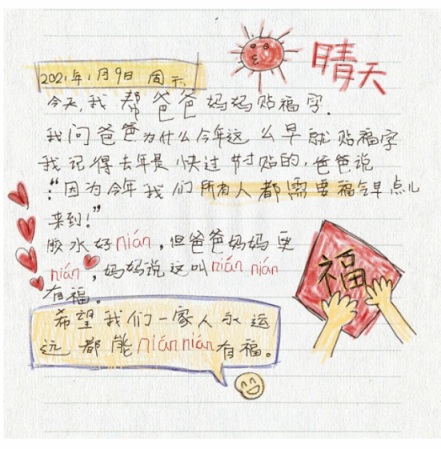 2021年1月9日 周六
晴天
今天,我帮爸爸妈妈贴福字.
我问爸爸为什么今年这么早就贴福字
我记得去年是快过节贴的,爸爸说
:"因为今年我们所有人都需要福气早点儿
来到!"
胶水好nián,但爸爸妈妈更
nián,妈妈说这叫nián nián
有福。
福
希望我们一家人永运
远都能niánnián有福。